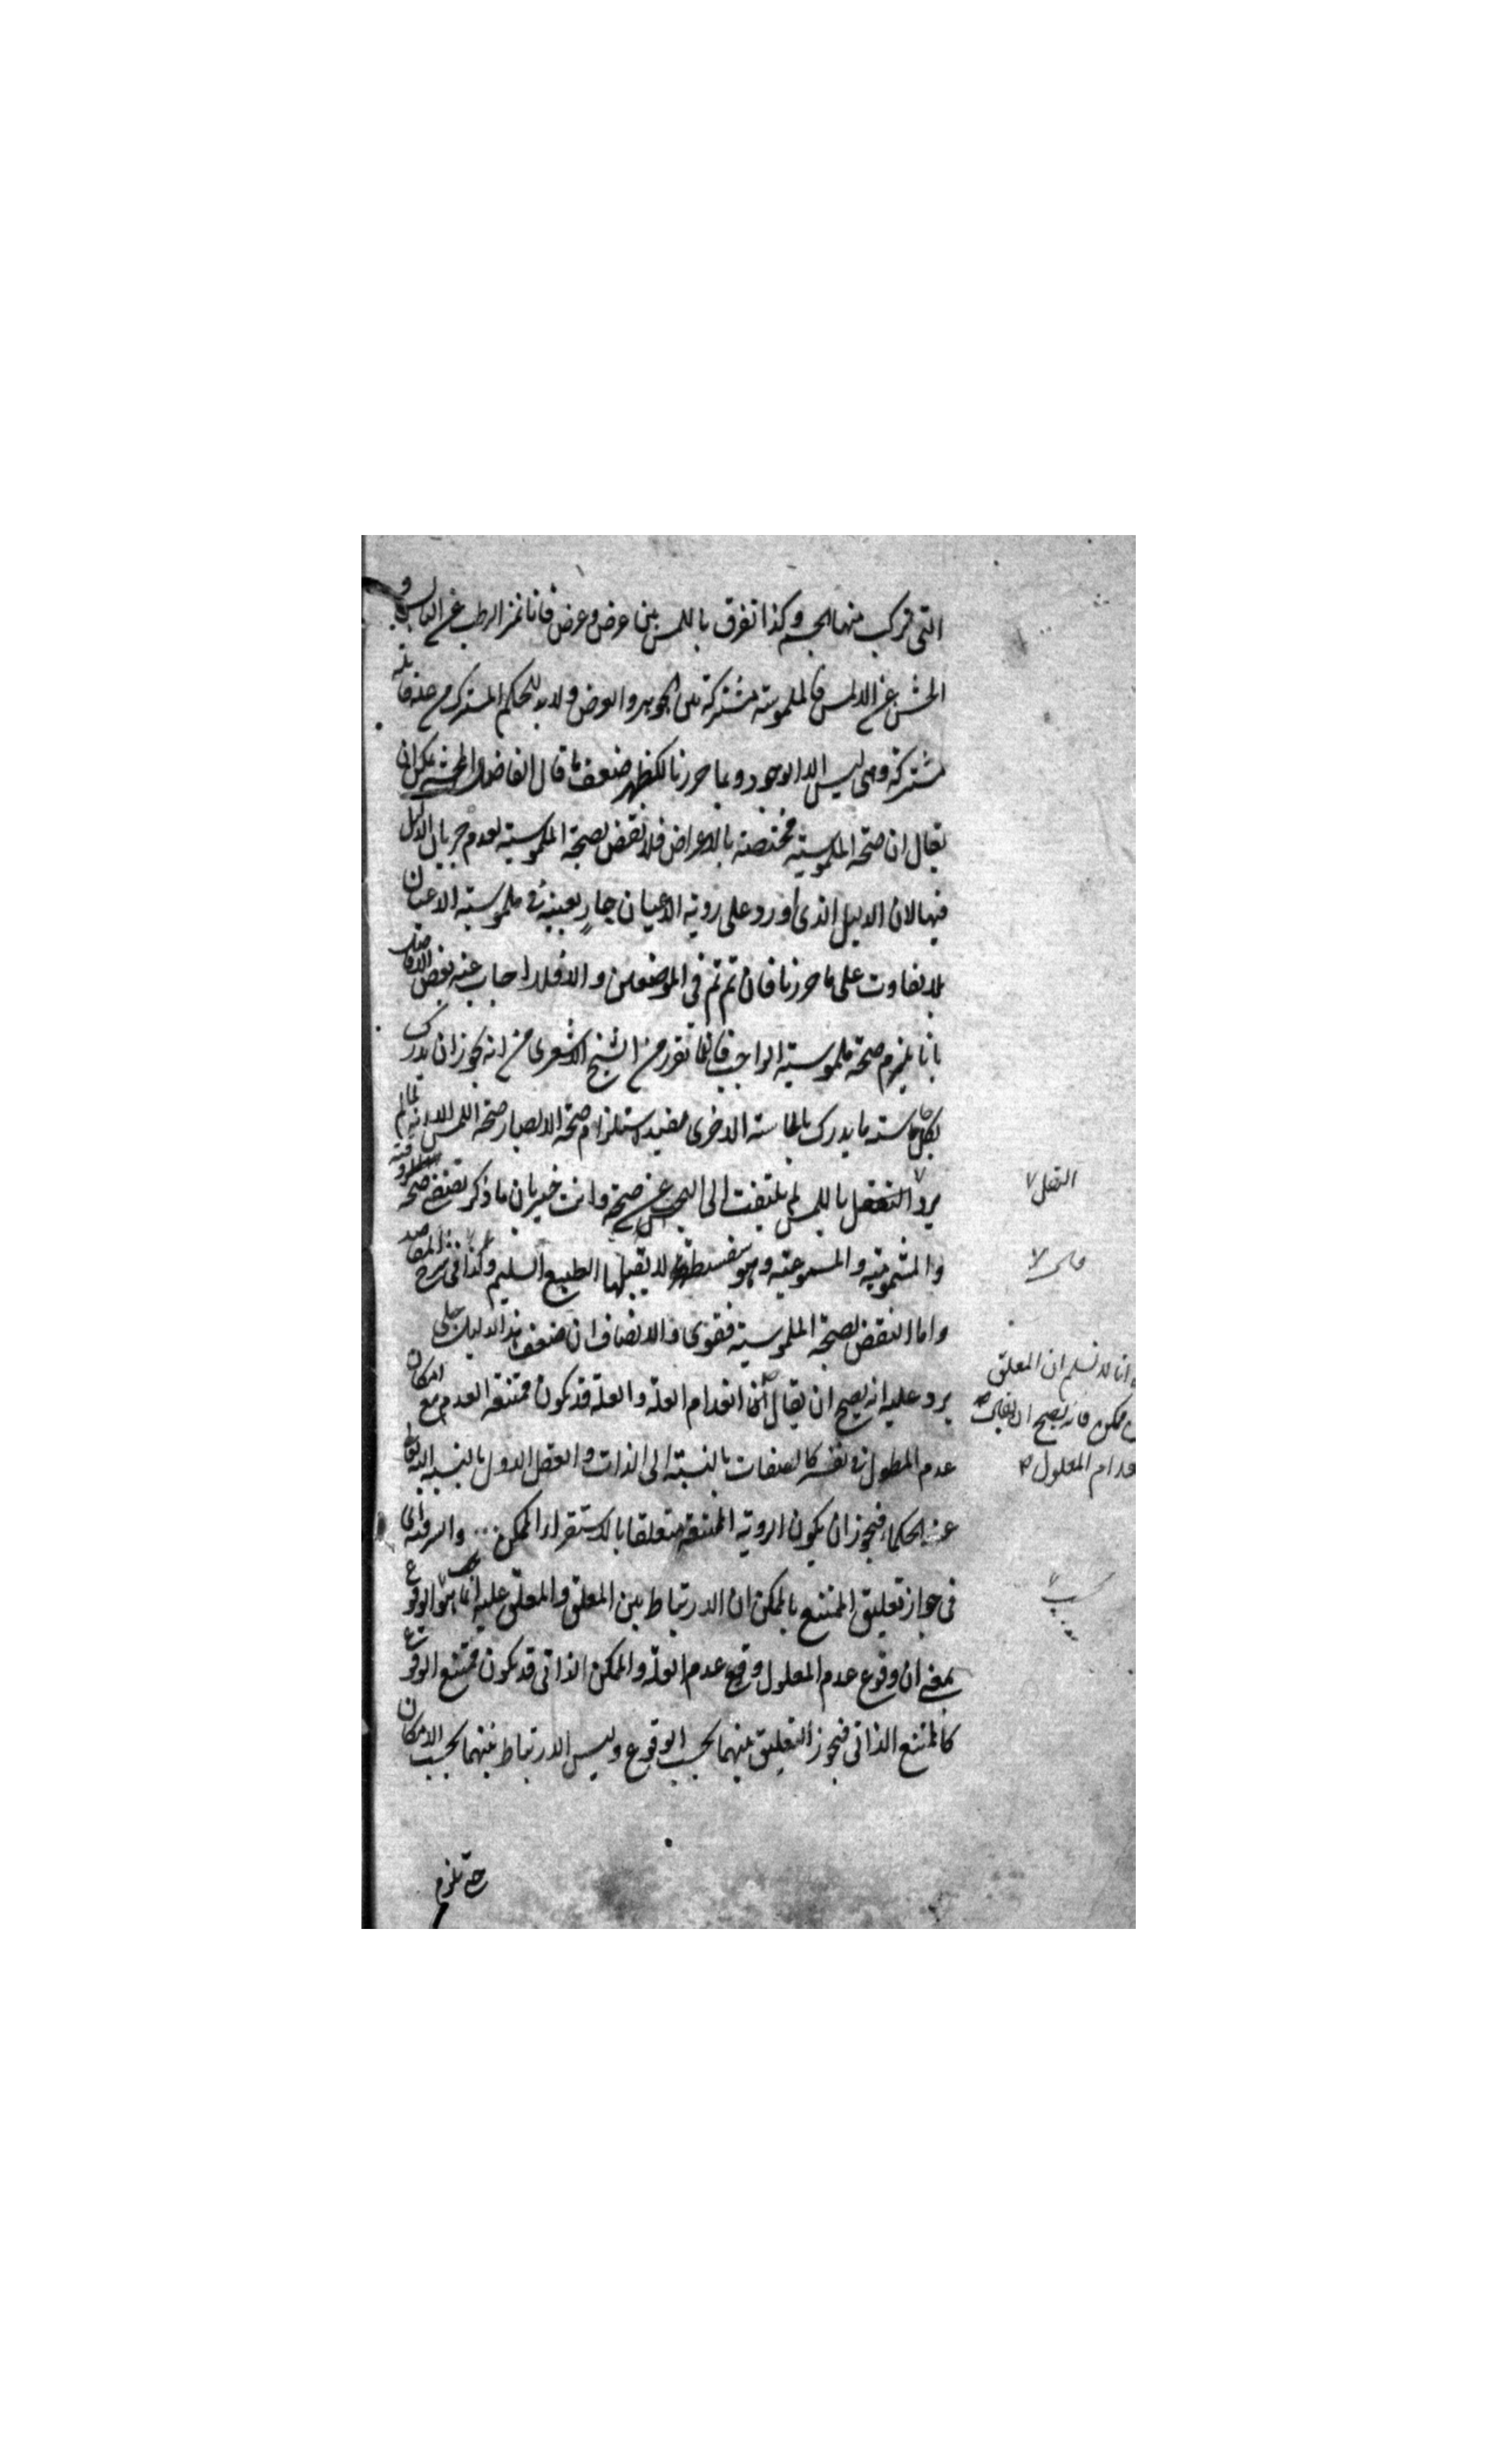 التى تركب منها الجسم وكذا نفرق باللمس بين عرض وعرض فانا نميز الرطب عن اليابس و
الخشن عن الاملس فالملموسية مشتركة بين الجوهر والعرض ولا بد للحكم المشترك من علة قابلة
مشتركة وهى ليس الا الوجود وبما حررنا لك ظهر ضعف ما قال الفاضل المحشى يمكن ان
يقال ان صحة الملموسية مختصة بالاعراض فلا نقض بصحة الملموسية لعدم جريان الدليل
فيها لان الدليل الذى اورد على روية الاعيان جارٍ بعينه فى ملموسية الاعيان
بلا تفاوت على ما حررنا فان تم تم فى الموضعين والا فلا اجاب عنه بعض الافاضل
بانا نلتزم صحة ملموسية الواجب فانه لما تقرر من الشيخ الاشعرى من انه يجوز ان يدرك
بكل حاسة ما يدرك بالحاسة الاخرى مفيد استلزام صحة الابصار صحة اللمس الا انه لما لم
يرد النقل باللمس لم يلتفت الى البحث عن صحته وانت خبير بان ما ذكر يقتضى صحة
والمشمومية والمسموعية وهو سفسطة لا يقبلها الطبع السليم وكذا فى شرح المقاصد
واما النقض بصحة الملموسية فقوى والانصاف ان ضعف هذا الدليل جلى
يرد عليه انه يصح ان يقال ان انعدم العلة والعلة قد يكون ممتنعة العدم مع امكان
عدم المعلول فى نفسه كالصفات بالنسبة الى الذات والعقل الاول بالنسبة اليه تعالى
عند الحكماء فيجوز ان يكون الروية الممتنعة متعلقا بالاستقرار الممكن والسر فيه اى
فى جواز تعليق الممتنع بالممكن ان الارتباط بين المعلق والمعلق عليه انما هو الوقوع
بمعنى ان وقوع عدم المعلول وقع عدم العلة والممكن الذاتى قد يكون ممتنع الوقوع
كالممتنع الذاتى فيجوز التعليق بينهما بحسب الوقوع وليس الارتباط بينهما بحسب الامكان
حتى يلزم
النقل
انا لا نسلم ان المعلق
ممكن فانه يصح ان يقال
انعدام المعلول
بحسب